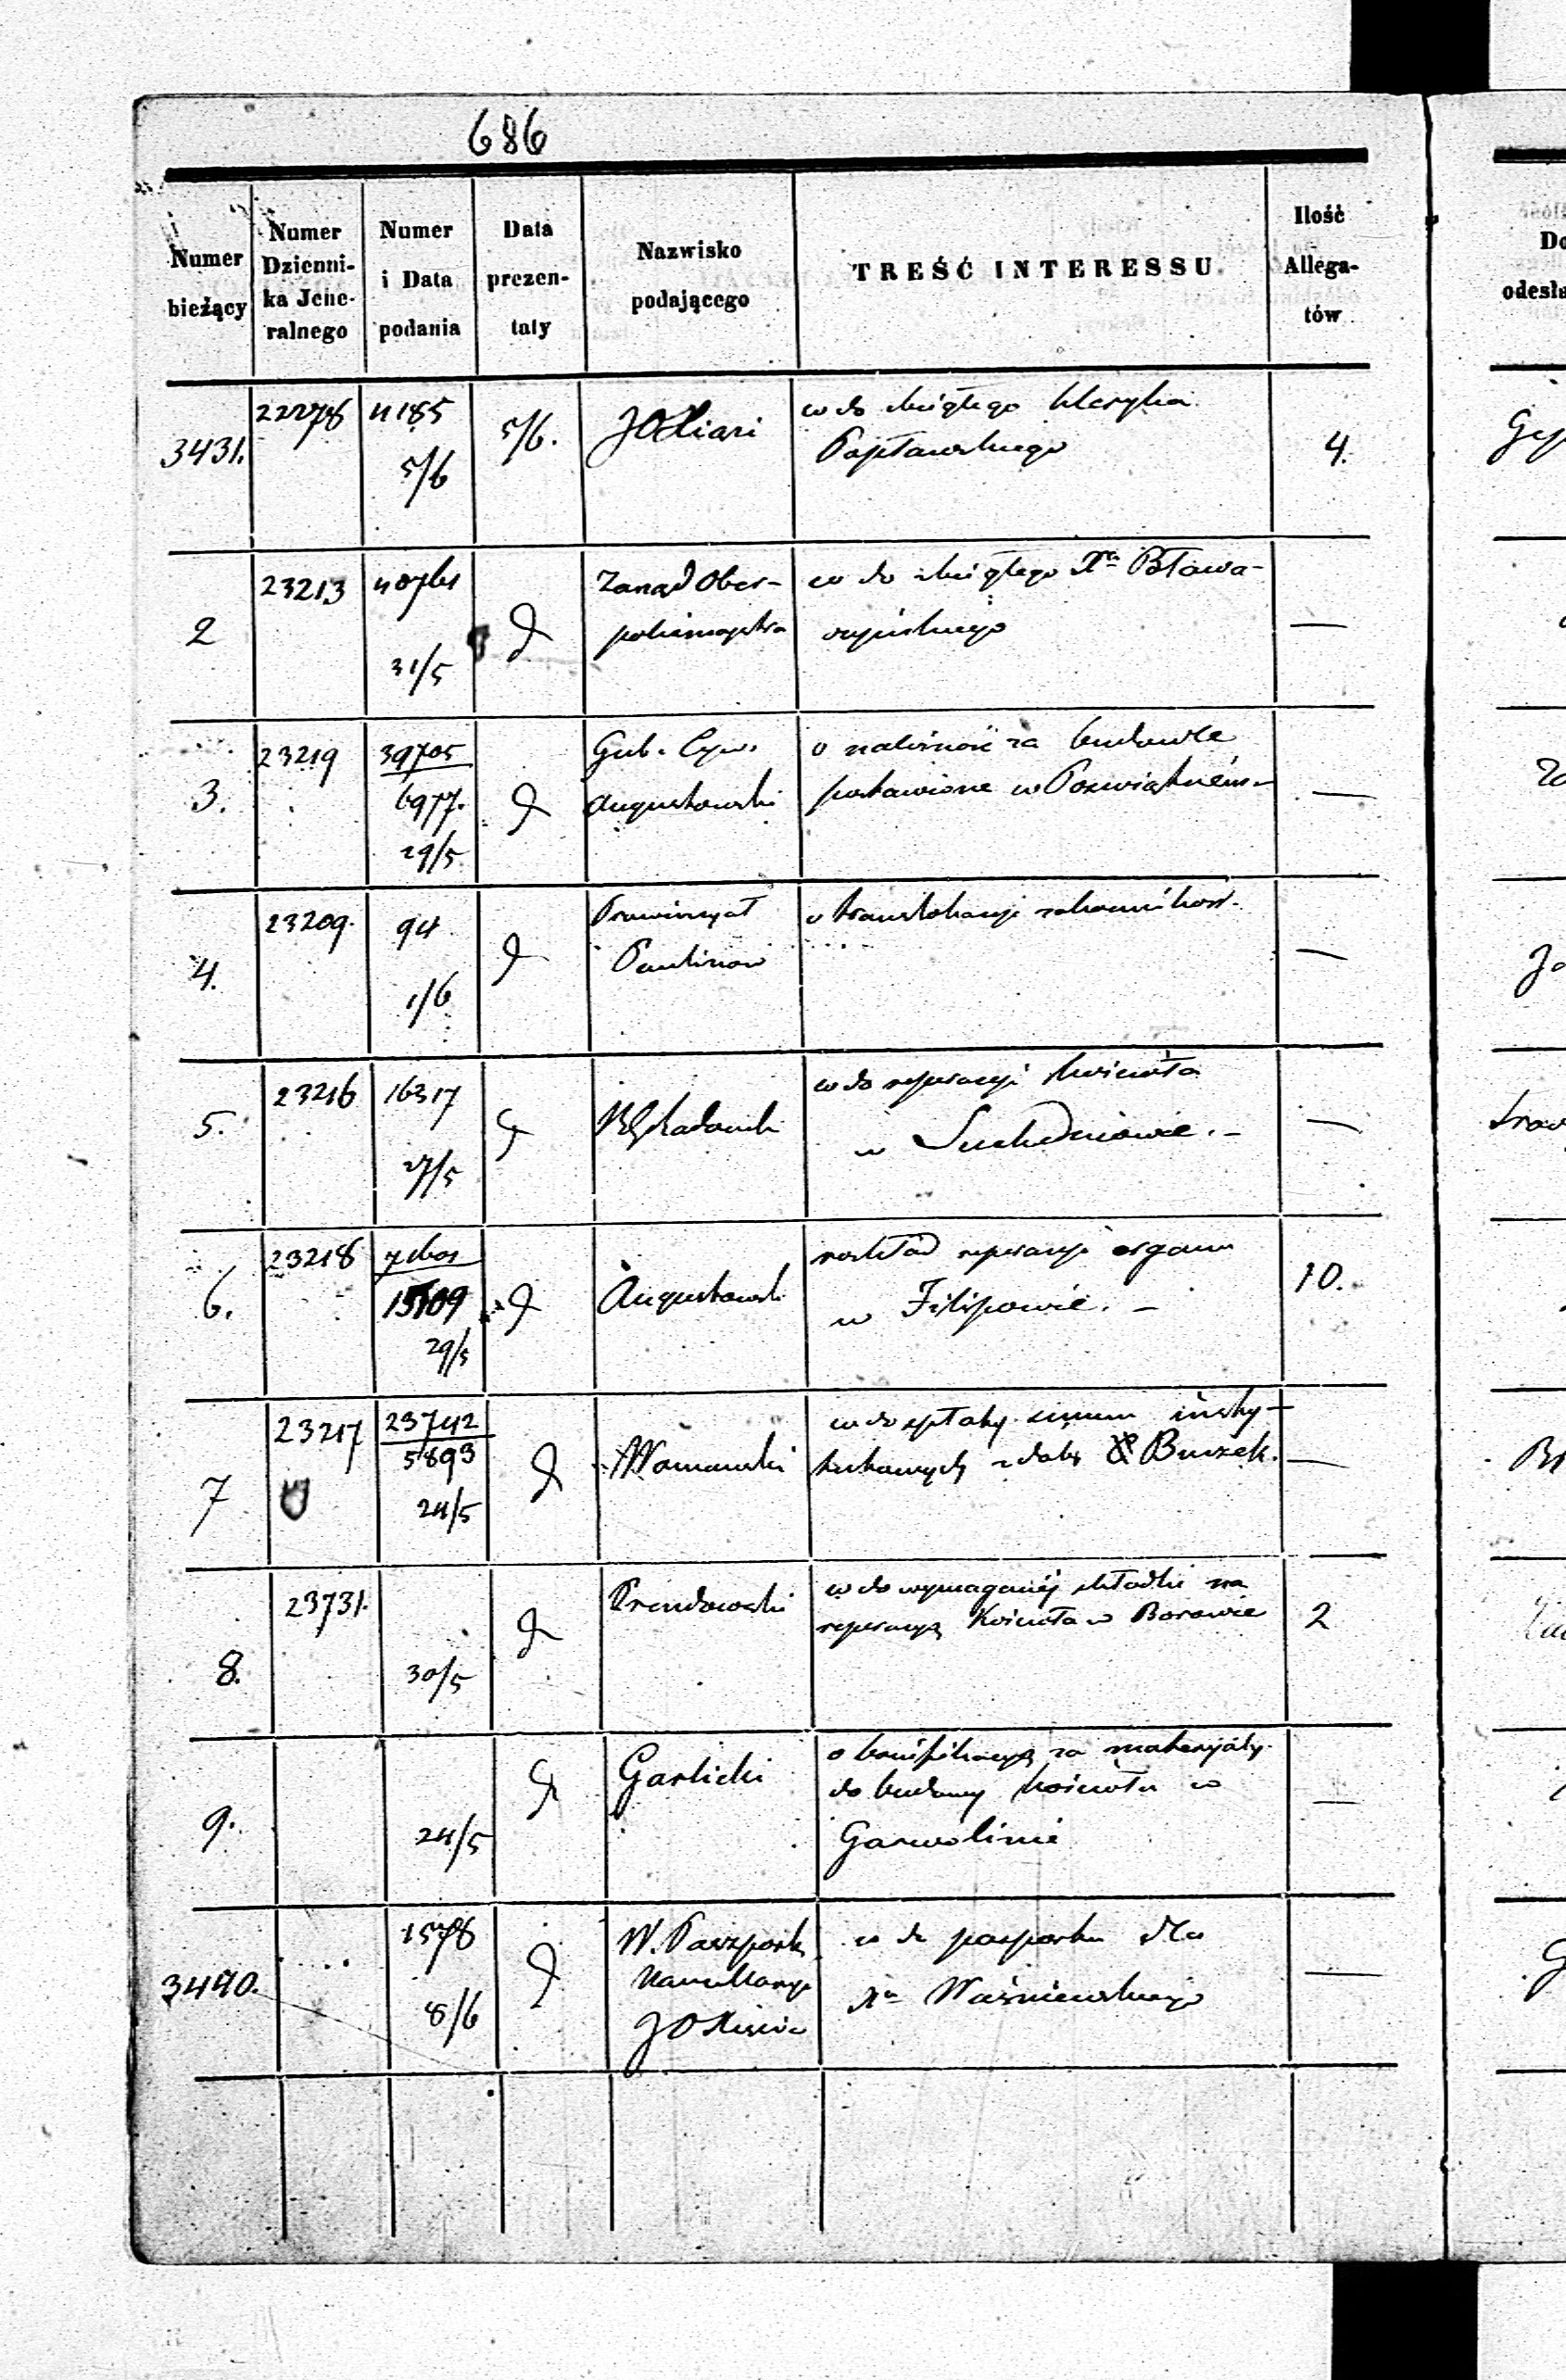 686
Numer bieżący | Numer Dzienni-ka Jene-ralnego | Numer i Data podania | Data prezen-taty | Nazwisko podającego | TREŚĆ INTERESSU | Ilość Allega-tów
3431. | 22278 | 4185 5/6 | 5/6. | JO | w do zbiegłego kleryka
Popławskiego | 4.
2 | 23213 | 31/5 | Zarząd Ober-
policmajstra | w do zbiegłego Xa
—
3. | 23219 | 39705
6977. 29/5 | Gub. Cyw.
Augustowski | o należność za budowle
postawione w | —
4. | 23209. | 94 1/6 | Prowincyał
Paulinów | o translokacyi zakonników. | —
5. | 23216 | 16317 27/5 | RG Radomski | w do reperacyi kościoła
w Suchedniowie. – | —
6. | 23218 | 29/5 | Augustowski | rozkład reperacyi organu
w Filipowie. – | 10.
7 | 23217 | 23742
5893 24/5 | w do spłaty summ insty-
tutowych z dóbr Buczek. | —
8. | 23731. | 30/5 | Prendowski | w do wymaganéj składki na
reperacyą Kościoła w Borowie | 2
9. | 24/5 | Garlicki | o bonifikacyą za materyały
do budowy kościoła w
Garwolinie | —
3440. | 1578 8/6 | W. Paszport.
Kancellaryi
JO | w do paszportu dla
Xa Waśniewskiego | —